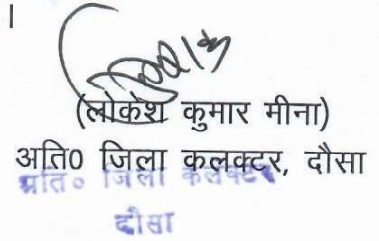 ।
(लोकेश कुमार मीना)
अति0 जिला कलक्टर, दौसा
अति० जिला कलक्टर
दौसा